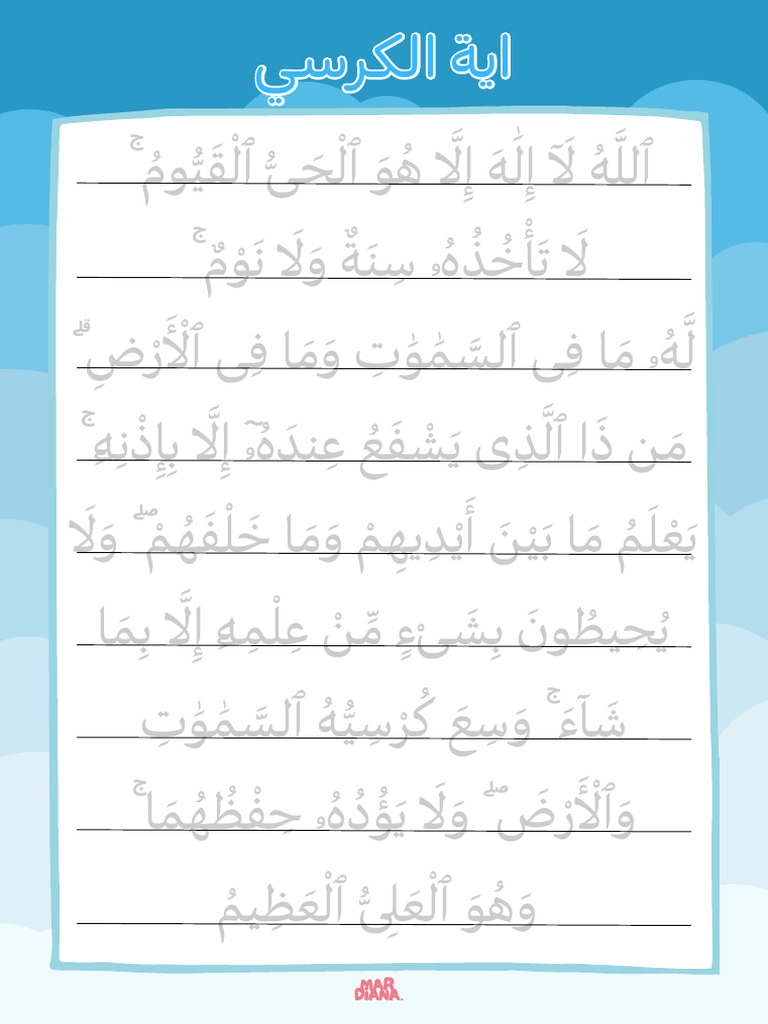 اية الكرسي
ٱللَّهُ لَآ إِلَٰهَ إِلَّا هُوَ ٱلْحَىُّ ٱلْقَيُّومُ ۚ
لَا تَأْخُذُهُۥ سِنَةٌ وَلَا نَوْمٌ ۚ
لَّهُۥ مَا فِى ٱلسَّمَٰوَٰتِ وَمَا فِى ٱلْأَرْضِ ۗ
مَن ذَا ٱلَّذِى يَشْفَعُ عِندَهُۥٓ إِلَّا بِإِذْنِهِۦ ۚ
يَعْلَمُ مَا بَيْنَ أَيْدِيهِمْ وَمَا خَلْفَهُمْ ۖ وَلَا
يُحِيطُونَ بِشَىْءٍ مِّنْ عِلْمِهِۦٓ إِلَّا بِمَا
شَآءَ ۚ وَسِعَ كُرْسِيُّهُ ٱلسَّمَٰوَٰتِ
وَٱلْأَرْضَ ۖ وَلَا يَؤُدُهُۥ حِفْظُهُمَا ۚ
وَهُوَ ٱلْعَلِىُّ ٱلْعَظِيمُ
MAR
DIANA.